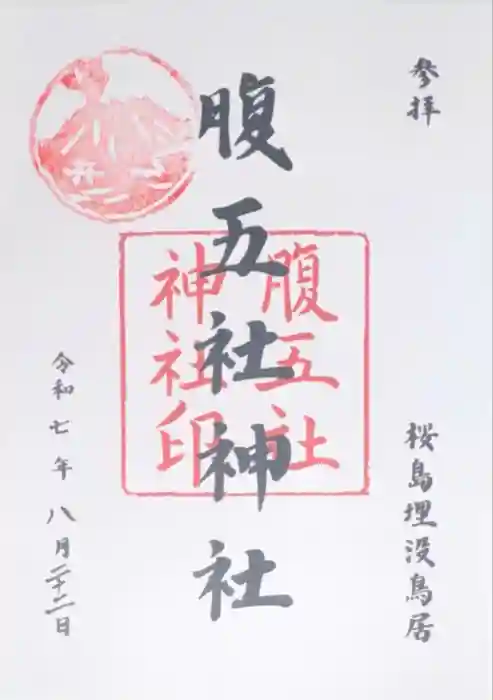 參拝
桜島埋没鳥居
腹五社神社
腹五社
神社印
令和七年八月二十二日